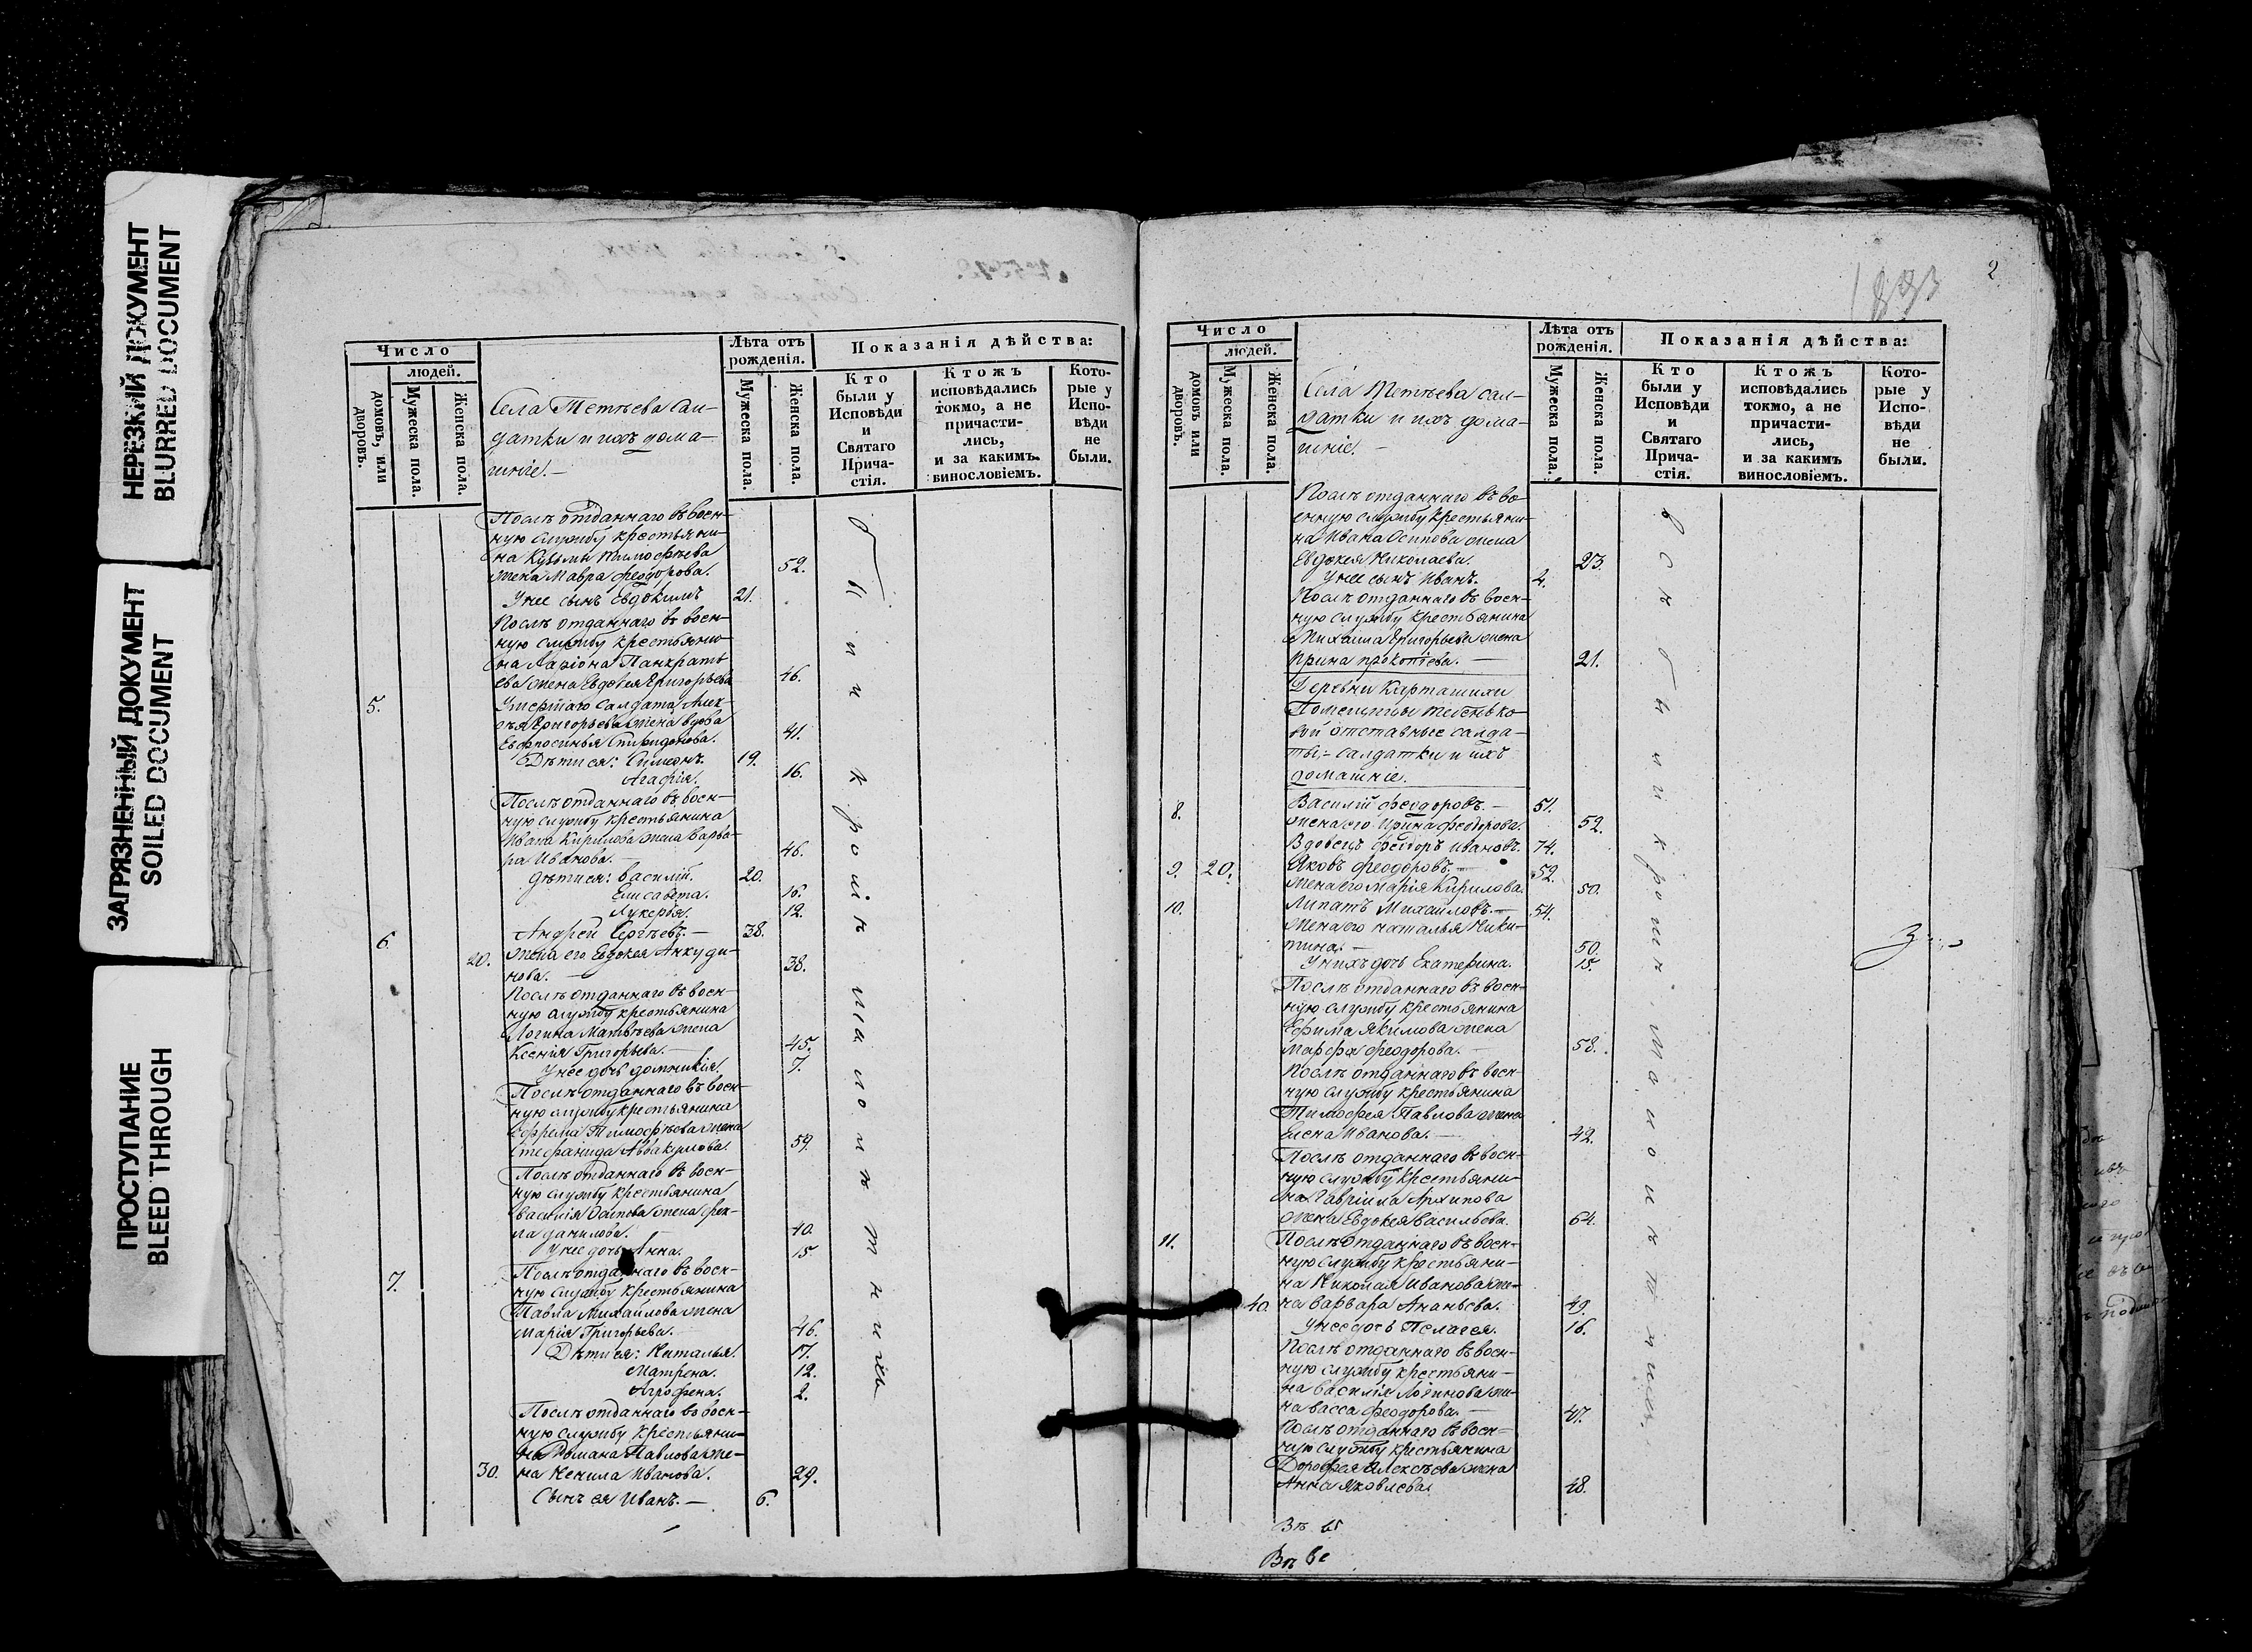 НЕРЕЗКИЙ ДОКУМЕНТ
BLURRED DOCUMENT
ЗАГРЯЗНЕННЫЙ ДОКУМЕНТ
SOILED DOCUMENT
ПРОСТУПАНИЕ
BLEED THROUGH
Число
людей.
домовъ, или дворовъ.
Мужеска пола.
Женска пола.
Села Тетѣева сал-
датки и ихъ дома-
шніе.
Лѣта отъ рожденія.
Мужеска пола.
Женска пола.
Показанія дѣйства:
Кто были у Исповѣди и Святаго Прича-стія.
Ктожъ исповѣдались токмо, а не причасти-лись, и за какимъ винословіемъ.
Кото-рые у Испо-вѣди не были.
Послѣ отданнаго въ воен-
ную службу крестьяни-
на Кузьмы Тимофѣева
жена Мавра Феодорова. 52.
У нее сынъ Евдокимъ 21.
Послѣ отданнаго въ воен-
ную службу крестьяни-
на Лариона Панкратъ
ева жена Евдокея Григорьева 46.
5. Умершаго салдата Алек-
сѣя Григорьева жена вдова
Евфросинья Спиридонова. 41.
Дѣти ея: Симеонъ. 19.
Агафія. 16.
Послѣ отданнаго въ воен-
ную службу крестьянина
Ивана Кирилова жена Варва-
ра Иванова. 46.
Дѣти ея: Василій. 20.
Елисавета. 16.
Лукерья. 12.
6. Андрей Сергѣевъ. 38.
20. жена его Евдокея Анкуди-
нова. 38.
Послѣ отданнаго въ воен-
ную службу крестьянина
Логина Матвѣева жена
Ксенія Григорьева. 45.
У нее дочь Домникія. 7.
Послѣ отданнаго въ воен-
ную службу крестьянина
Ефрема Тимофѣева жена
Стефанида Аввакумова. 59.
Послѣ отданнаго въ воен-
ную службу крестьянина
Василія жена Фек-
ла Данилова. 40.
У нее дочь Анна. 15
7. Послѣ отданнаго въ воен-
ную службу крестьянина
Павла Михайлова жена
Марія Григорьева. 46.
Дѣти ея: Наталья. 17.
Матрена. 12.
Агрофена. 2.
Послѣ отданнаго въ воен-
ную службу крестьяни-
на Романа Павлова же-
30. на Ненила Иванова. 29.
Сынъ ея Иванъ. 6.
2
Число
людей.
домовъ или дворовъ.
Мужеска пола.
Женска пола.
Села Тетѣева сал-
датки и ихъ дома-
шніе.
Лѣта отъ рожденія.
Мужеска пола.
Женска пола.
Показанія дѣйства:
Кто были у Исповѣди и Святаго Прича-стія.
Ктожъ исповѣдались токмо, а не причасти-лись, и за какимъ винословіемъ.
Кото-рые у Испо-вѣди не были.
Послѣ отданнаго въ во-
енную службу крестьяни-
на Ивана Осипова жена
Евдокея Николаева. 23.
У нее сынъ Иванъ. 4.
Послѣ отданнаго въ воен-
ную службу крестьянина
Михаила Григорьева жена
Ирина Прокопіева. 21.
Деревни Карташихи
Помещицы
вой отставные салда-
ты, салдатки и ихъ
домашніе.
8. Василій Феодоровъ. 51.
жена его Ирина Феодорова. 52.
Вдовецъ Феодоръ Ивановъ. 74.
9. 20. Яковъ Феодоровъ. 52.
жена его Марія Кирилова. 50.
10. Липатъ Михайловъ. 54.
Жена его Наталья Ники-
тина. 50.
У нихъ дочь Екатерина. 15.
Послѣ отданнаго въ воен-
ную службу крестьянина
Ефима Якимова жена
Марфа Феодорова. 58.
Послѣ отданнаго въ воен-
ную службу крестьянина
Тимофея Павлова жена
Елена Иванова. 42.
Послѣ отданнаго въ воен-
ную службу крестьяни-
на Гавріила Архипова
жена Евдокея Васильева. 64.
11. Послѣ отданнаго въ воен-
ную службу крестьяни-
на Николая Иванова же-
40. на Варвара Ананьева. 49.
У нее дочь Пелагея. 16.
Послѣ отданнаго въ воен-
ную службу крестьяни-
на Василія Логинова же-
на Васса Феодорова. 47.
Послѣ отданнаго въ воен-
ную службу крестьянина
Дорофея Алексѣева жена
Анна Яковлева. 48.